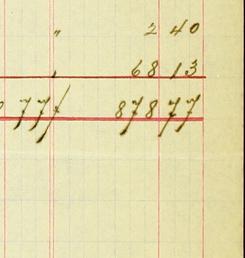 " 2 40
, 68 13
777 878 77